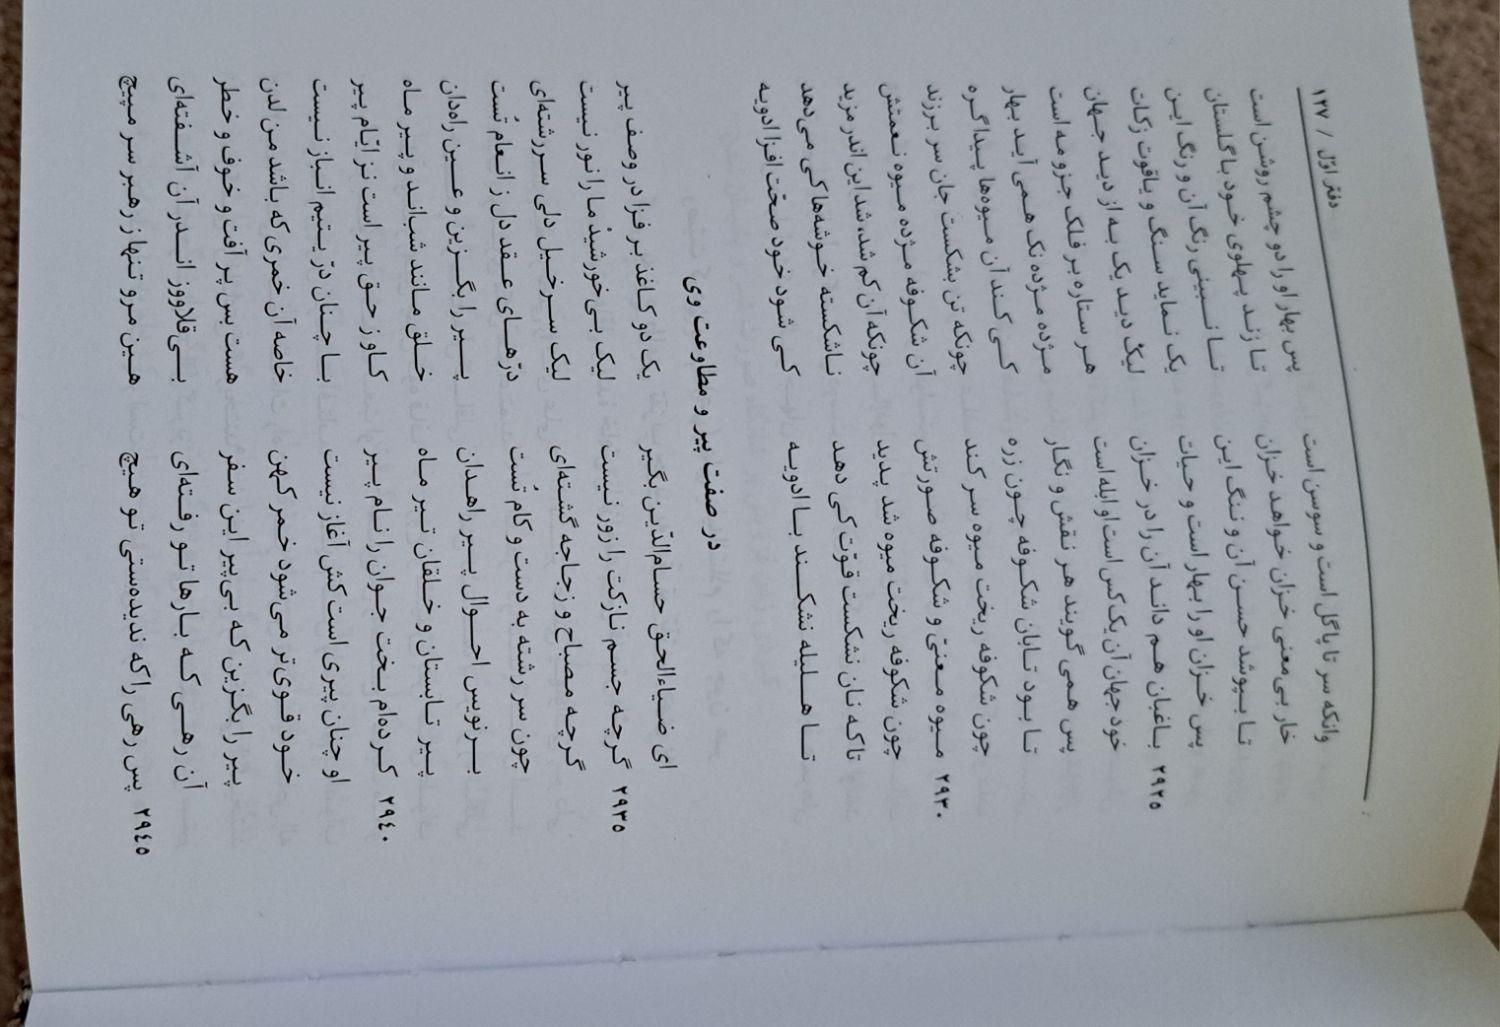 دفتر اوّل / ۱۳۷
وانکه سر تا پا گل است و سوسن است پس بهار او را دو چشم روشن است
خار بی‌معنی خزان خواهد خزان تا زند پهلوی خود با گلستان
تا بپوشد حسن آن و ننگ این تا نبینی رنگ آن و رنگ این
پس خزان او را بهار است و حیات یک نماید سنگ و یاقوت زکات
۲۹۲۵ باغبان هم داند آن را در خزان لیک دید یک به از دید جهان
خود جهان آن یک کس است او ابله است هر ستاره بر فلک جزو مه است
پس همی گویند هر نقش و نگار مژده مژده نک همی آید بهار
تا بود تابان شکوفه چون زره کی کند آن میوه‌ها پیدا گره
چون شکوفه ریخت میوه سر کند چونکه تن بشکست جان سر برزند
۲۹۳۰ میوه معنیّ و شکوفه صورتش آن شکوفه مژده میوه نعمتش
چون شکوفه ریخت میوه شد پدید چونکه آن کم شد، شد این اندر مزید
تا که نان نشکست قوّت کی دهد ناشکسته خوشه‌ها کی می‌دهد
تا هلیله نشکند با ادویه کی شود خود صحّت افزا ادویه
در صفت پیر و مطاوعت وی
ای ضیاءالحق حسام‌الدّین بگیر یک دو کاغذ بر فزا در وصف پیر
۲۹۳۵ گرچه جسم نازکت را زور نیست لیک بی خورشید ما را نور نیست
گرچه مصباح و زجاجه گشته‌ای لیک سرخیل دلی سررشته‌ای
چون سر رشته به دست و کام تُست درّهای عقد دل ز انعام تُست
برنویس احوال پیر راهدان پیر را بگزین و عین راه‌دان
پیر تابستان و خلقان تیر ماه خلق مانند شب‌اند و پیر ماه
۲۹۴۰ کرده‌ام بخت جوان را نام پیر کاو ز حق پیر است نز ایّام پیر
او چنان پیری است کش آغاز نیست با چنان درّ یتیم انباز نیست
خود قوی‌تر می‌شود خمر کهن خاصه آن خمری که باشد من لدن
پیر را بگزین که بی پیر این سفر هست بس پر آفت و خوف و خطر
آن رهی که بارها تو رفته‌ای بی قلاووز اندر آن آشفته‌ای
۲۹۴۵ پس رهی را که ندیده‌ستی تو هیچ هین مرو تنها ز رهبر سر مپیچ